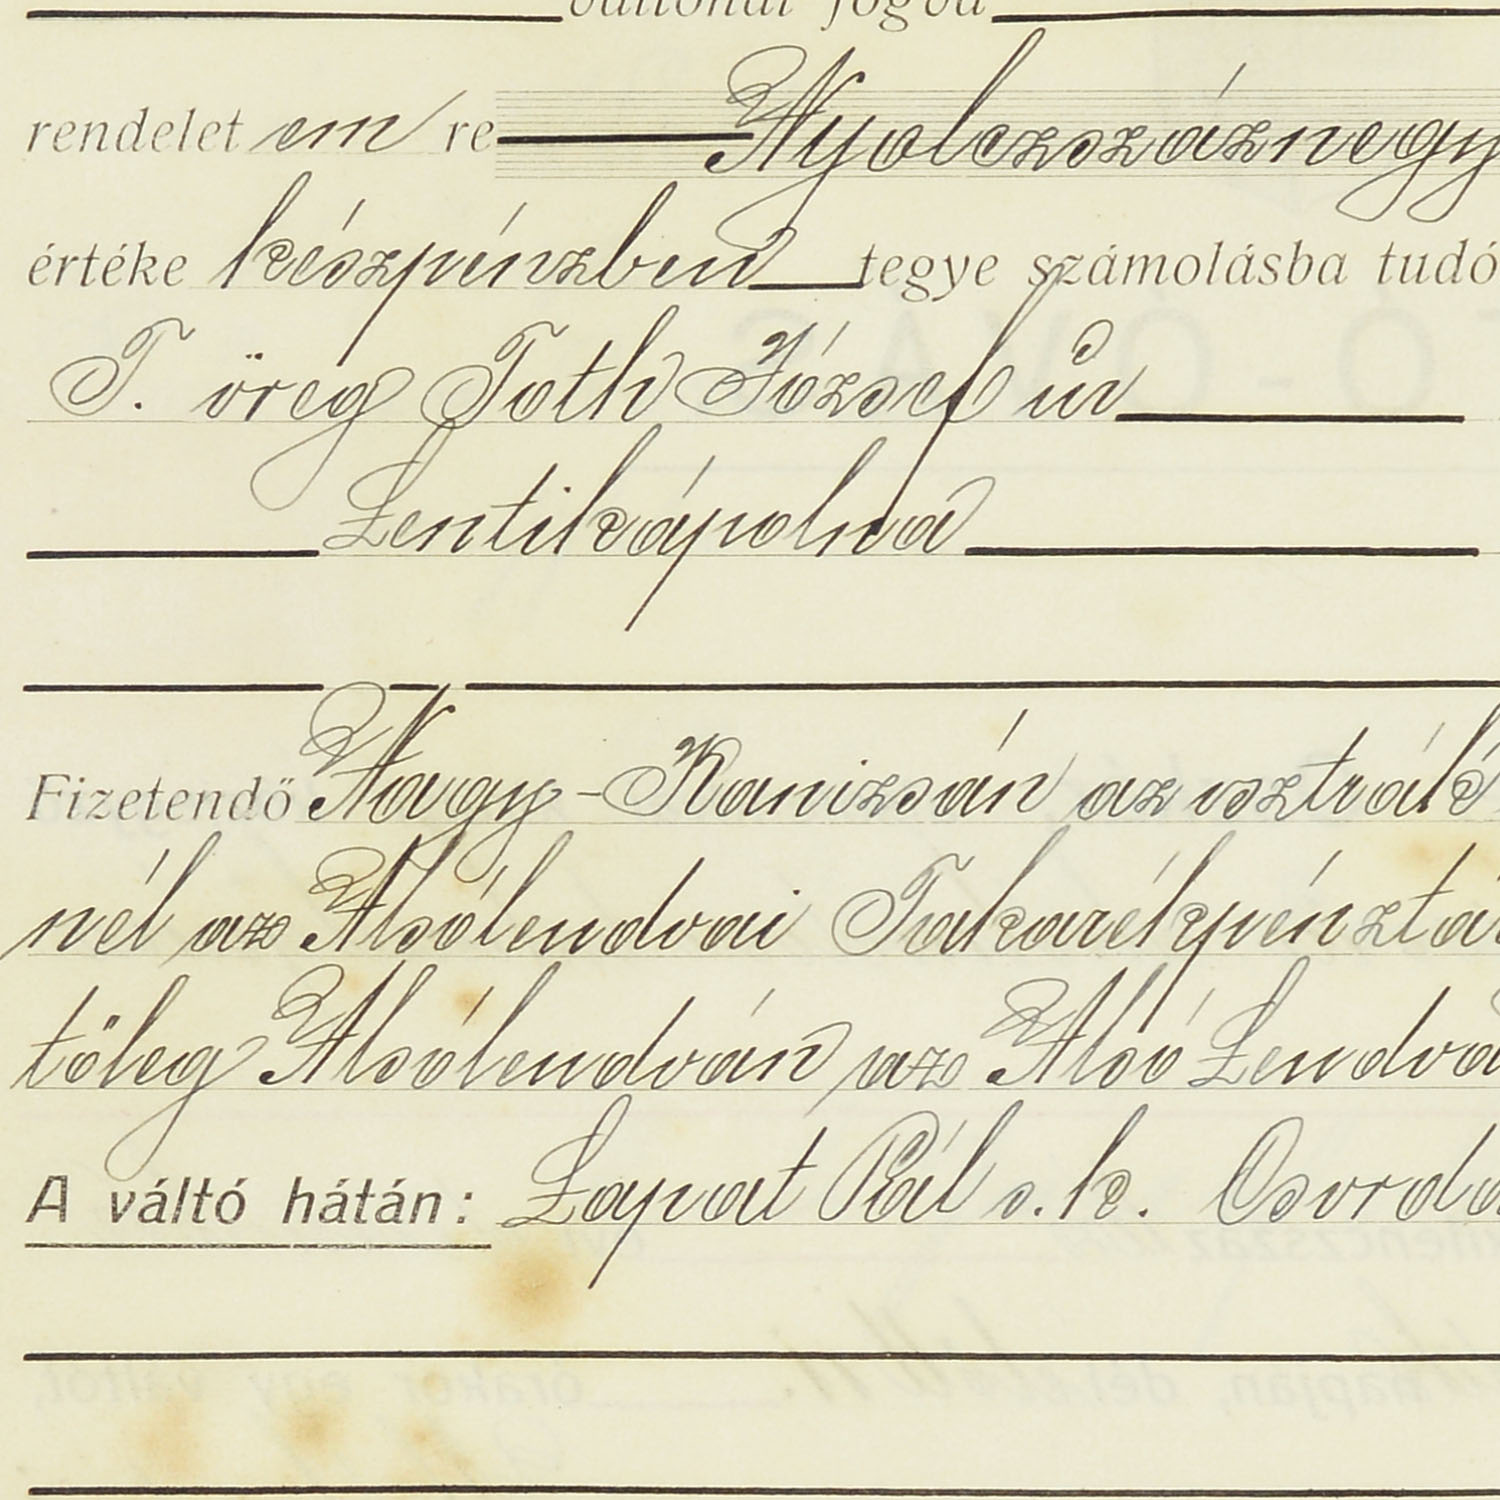 váltónál fogva
rendelet em re Nyolczszáznegy
értéke készpénzben tegye számolásba tudó
T. öreg Toth József úr
Lentikápolna
Fizetendő Nagy-Kanizsán az osztrák
nél az Alsólendvai Takarékpénztá
tőleg Alsólendván az Alsó Lendva
A váltó hátán: Lapat Pál s. k. Osvrda